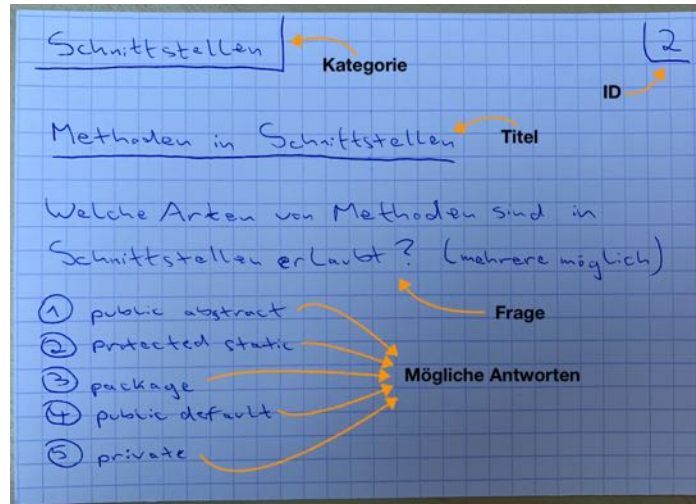 Schnittstellen
Kategorie
2
ID
Methoden in Schnittstellen
Titel
Welche Arten von Methoden sind in
Schnittstellen erlaubt? (mehrere möglich)
Frage
① public abstract
② protected static
③ package
④ public default
⑤ private
Mögliche Antworten